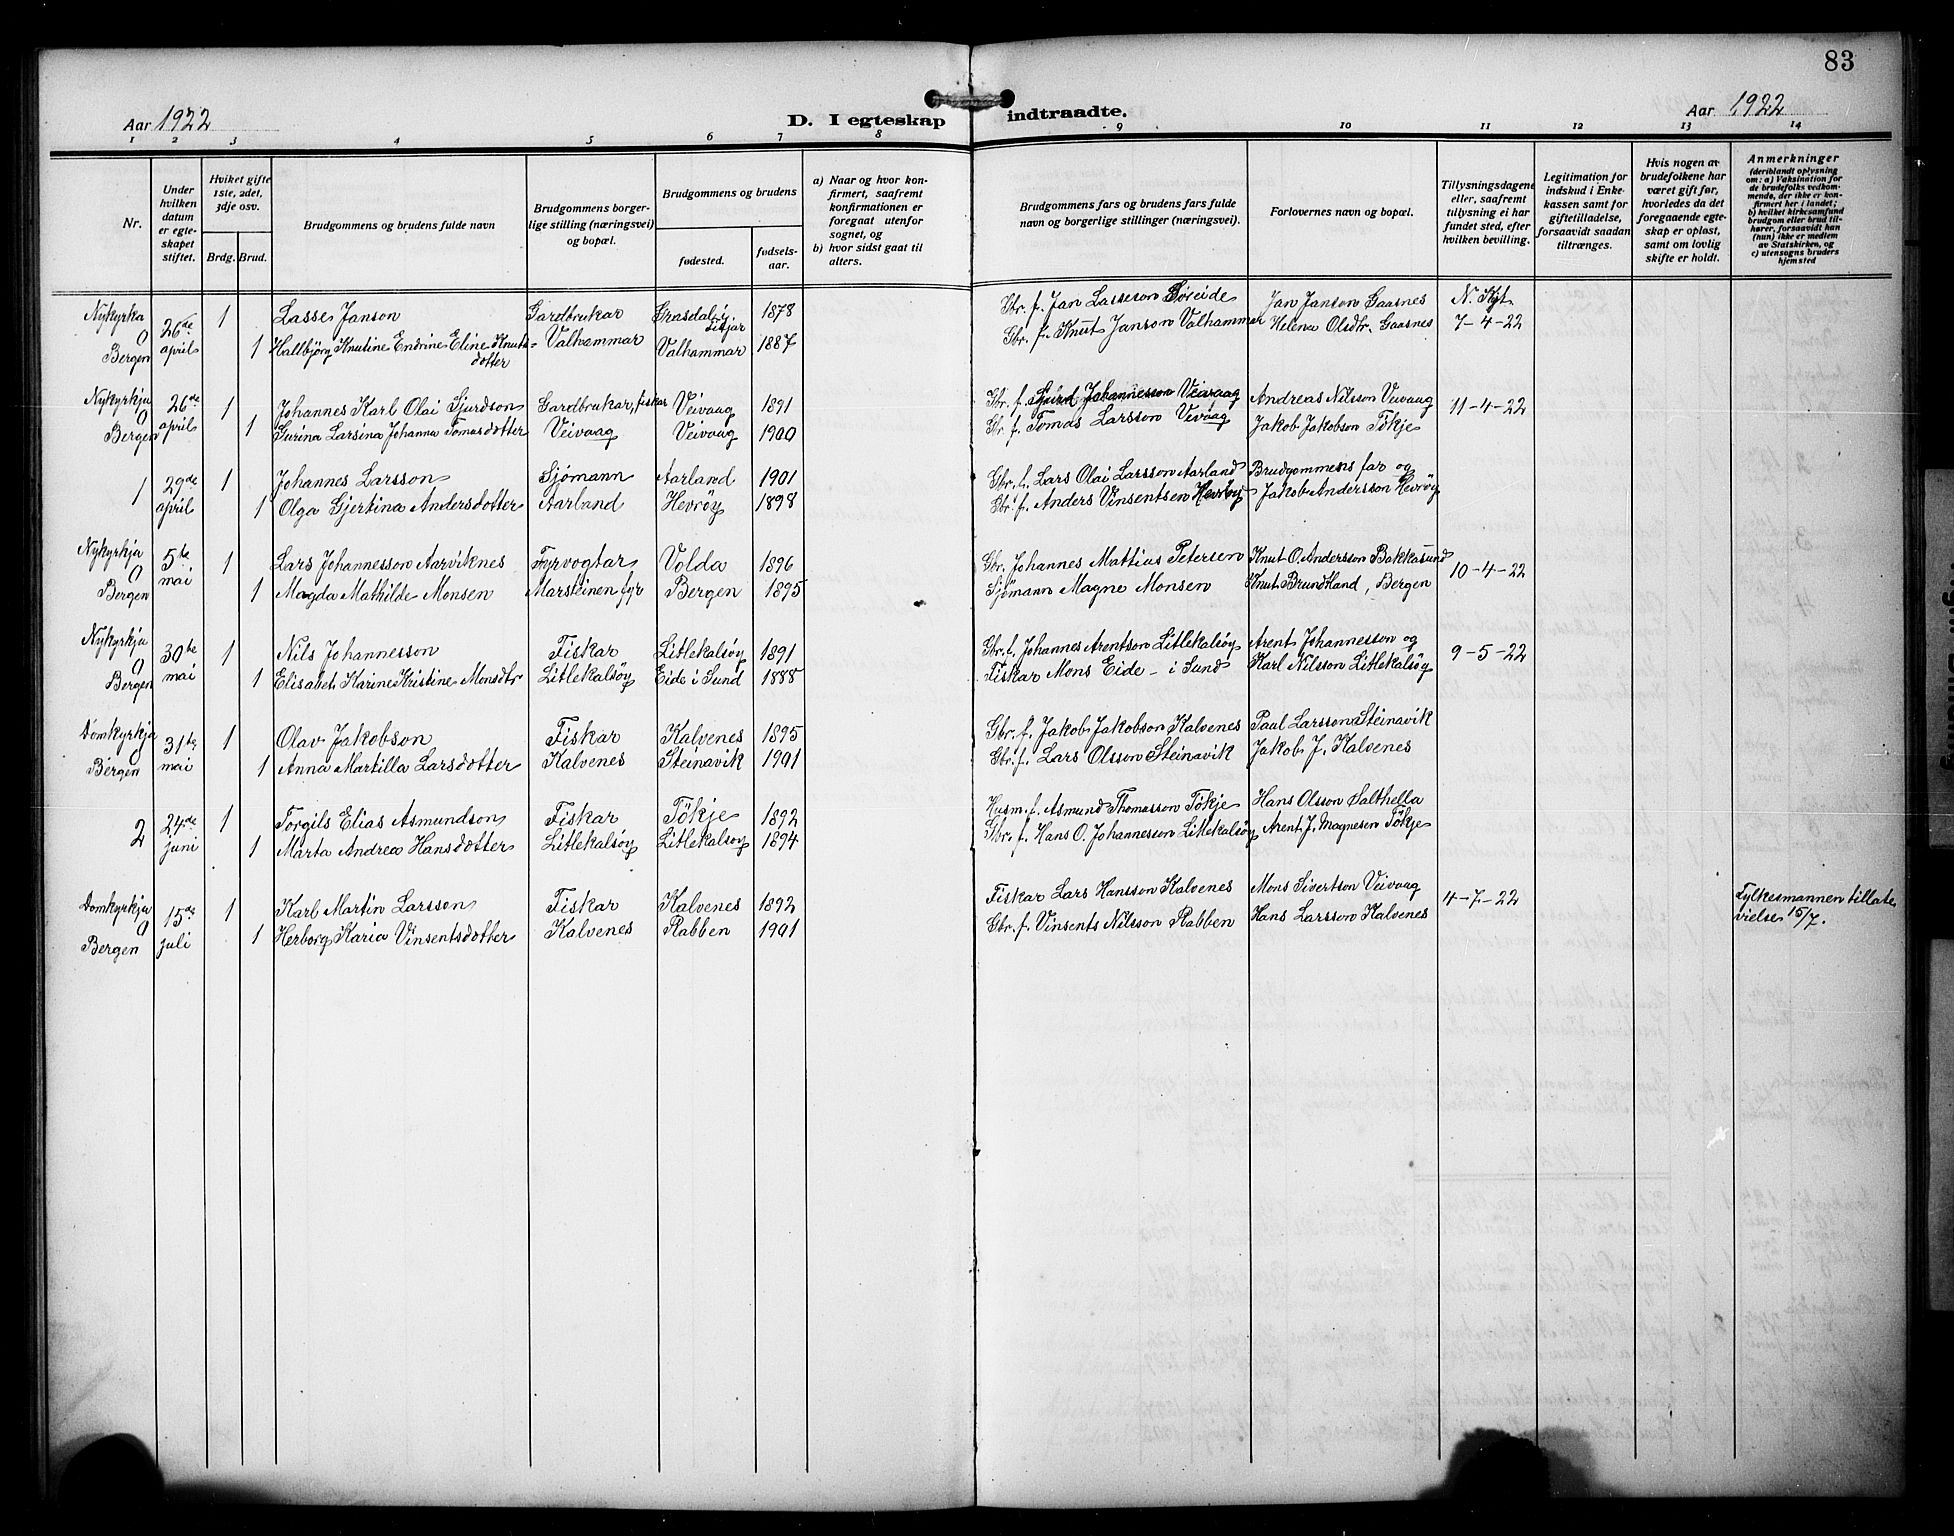 83
Aar 1922
D. I egteskap indtraadte.
Aar 1922
1 2 3 4 5 6 7 8 9 10 11 12 13 14
Nr.
Under hvilken datum er egteskapet stiftet.
Hviket gifte 1ste, 2det, 3dje osv.
Brdg. Brud.
Brudgommens og brudens fulde navn
Brudgommens borgerlige stilling (næringsvei) og bopæl.
Brudgommens og brudens
fødested.
fødselsaar.
a) Naar og hvor konfirmert, saafremt konfirmationen er foregaat utenfor sognet, og
b) hvor sidst gaat til alters.
Brudgommens fars og brudens fars fulde navn og borgerlige stillinger (næringsvei).
Forlovernes navn og bopæl.
Tillysningsdagene eller, saafremt tillysning ei har fundet sted, efter hvilken bevilling.
Legitimation for indskud i Enkekassen samt for giftetilladelse, forsaavidt saadan tiltrænges.
Hvis nogen av brudefolkene har været gift før, hvorledes da det foregaaende egteskap er opløst, samt om lovlig skifte er holdt.
Anmerkninger
(deriblandt oplysning om: a) Vaksination for de brudefolks vedkommende, der ikke er konfirmert her i landet; b) hvilket kirkesamfund brudgom eller brud tilhører, forsaavidt han (hun) ikke er medlem av Statskirken, og c) utensogns bruders hjemsted
Nykyrka 26de 1 Lasse Janson Gardbrukar Grasdalöy. Fitjar 1878 Gbr. f. Jan Lasseson Söreide Jan Janson Gaasnes N. Kyt.
Bergen april 1 Hallbjörg Knutine Endrine Eline Knutsdotter Valhammar Valhammar 1887 Gbr. f. Knut Janson Valhammar Helena Olsdtr. Gaasnes 7-4-22
Nykyrkja 26de 1 Johannes Karl Olai Sjurdson Gardbrukar, fiskar Veivaag 1891 Gbr. f. Sjurd Johannesson Veivaag Andreas Nilsson Veivaag 11-4-22
Bergen april 1 Gurina Larsina Johanna Tomasdotter Veivaag Veivaag 1900 Gbr. f. Tomas Larsson Vevaag Jakob Jakobson Tökje
1 29de 1 Johannes Larsson Sjömann Aarland 1901 Gbr. f. Lars Olai Larsson Aarland Brudgommens far og
april 1 Olga Gjertina Andersdotter Aarland Hevröy 1898 Gbr. f. Anders Vinsentsen Hevröy Jakob Andersson Hevröy
Nykyrkja 5te 1 Lars Johannesson Aarviknes Fyrvogtar Volda 1896 Gbr. Johannes Mattias Petersen Knut O. Andersson Bakkasund 10-4-22
Bergen mai 1 Magda Mathilde Monsen Marsteinen fyr Bergen 1895 Sjömann Magne Monsen Knut Brundtland, Bergen
Nykyrkja 30te 1 Nils Johannesson Fiskar Litlekalsöy 1891 Gbr. f. Johannes Arentson Litlekalsöy Arent Johannesson og 9-5-22
Bergen mai 1 Elisabet Karine Kristine Monsdtr Litlekalsöy Eide i Sund 1888 Fiskar Mons Eide - i Sund Karl Nilsson Litlekalsöy
Domkyrkja 31te 1 Olav Jakobson Fiskar Kalvenes 1895 Gbr. f. Jakob Jakobson Kalvenes Paal Larsson Steinavik
Bergen mai 1 Anna Martilla Larsdotter Kalvenes Steinavik 1901 Gbr. f. Lars Olsson Steinavik Jakob J. Kalvenes
2 24de 1 Torgils Elias Asmundson Fiskar Tökje 1892 Husm. f. Asmund Thomasson Tökje Hans Olsson Salthella
juni 1 Marta Andrea Hansdotter Litlekalsöy Litlekalsoy 1894 Gbr. f. Hans O. Johannesson Litlekalsöy Arent J. Magnesen Tökje
Domkyrkja 15de 1 Karl Martin Larsson Fiskar Kalvenes 1892 Fiskar Lars Hansson Kalvenes Mons Sivertson Veivaag 4-7-22 Fylkesmannen tillate
Bergen juli 1 Herborg Karia Vinsentsdotter Kalvenes Rabben 1901 Gbr. f. Vinsents Nilsson Rabben Hans Larsson Kalvenes vielse 15/7.